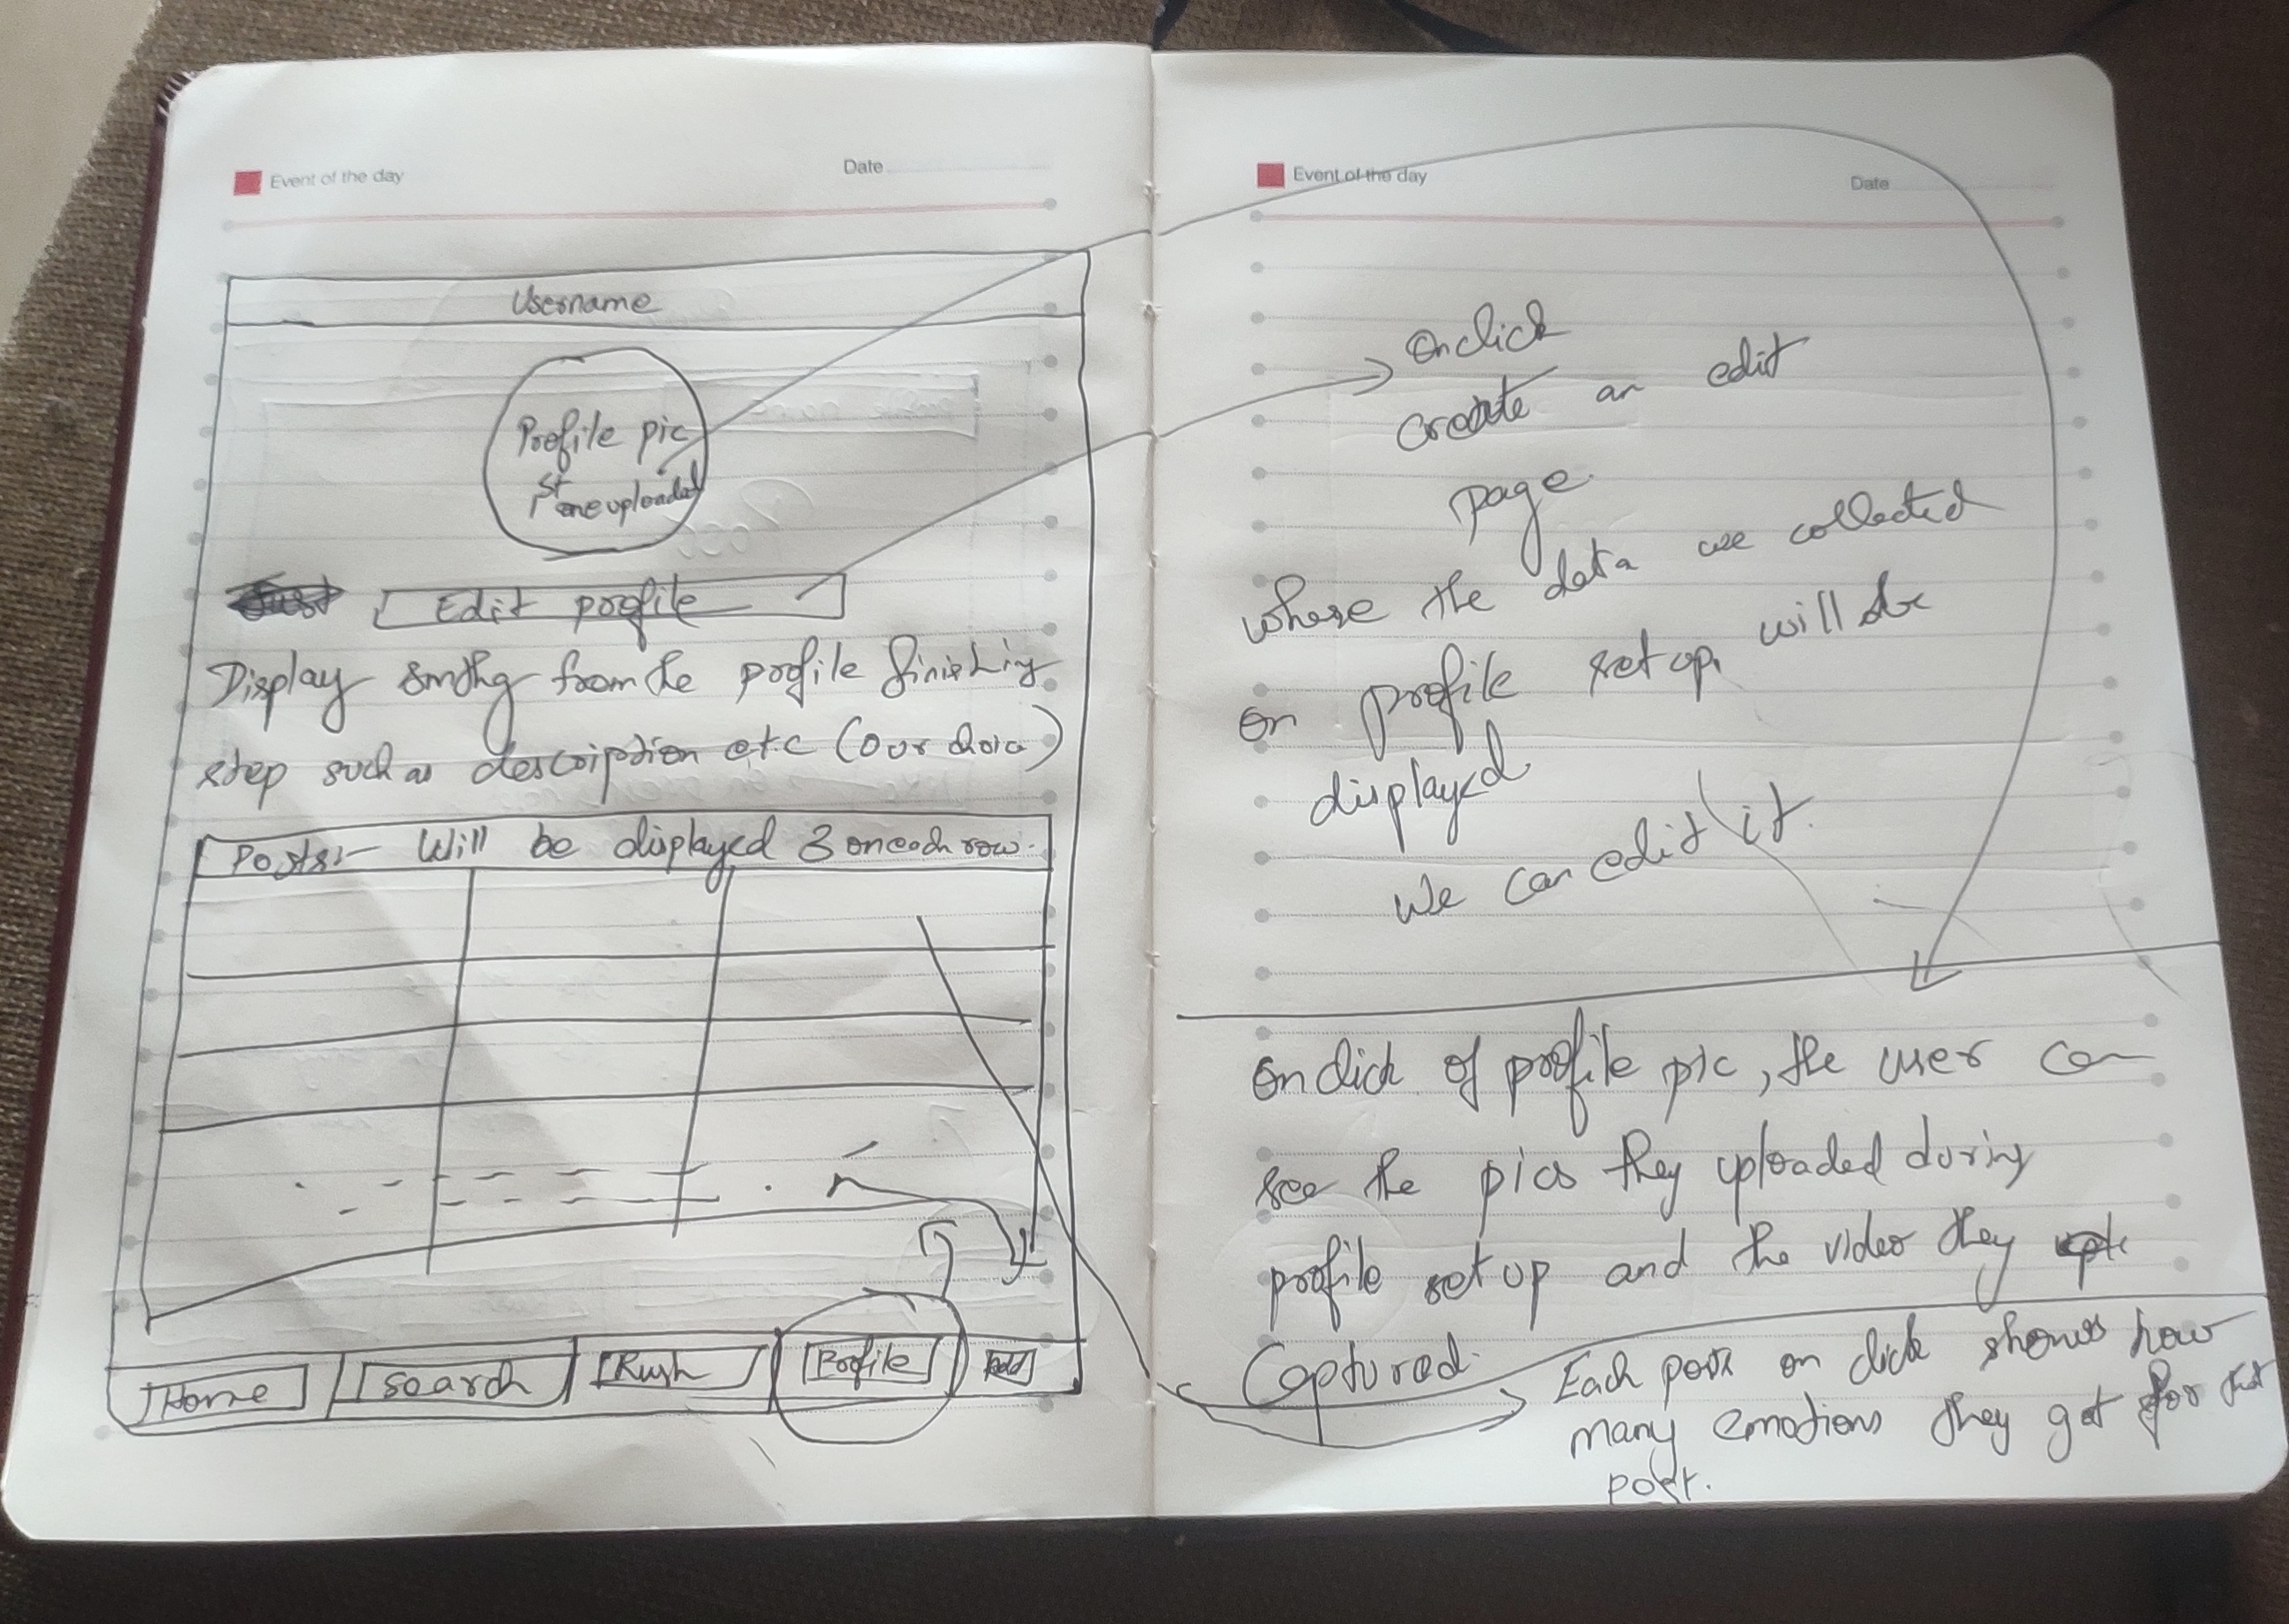 Event of the day
Date
Username
Profile pic
1st one uploaded
Edit profile
Display smthg from the profile finishing
step such as description etc (Our choice)
Posts:- Will be displayed 3 on each row.
Home
Search
Rush
Profile
Add
Event of the day
Date
Onclick
create an edit
page
where the data we collected
on profile set up, will be
displayed.
We can edit it.
On click of profile pic, the user can
see the pics they uploaded during
profile set up and the video they
Captured.
Each post on click shows how
many emotions they got for that
post.